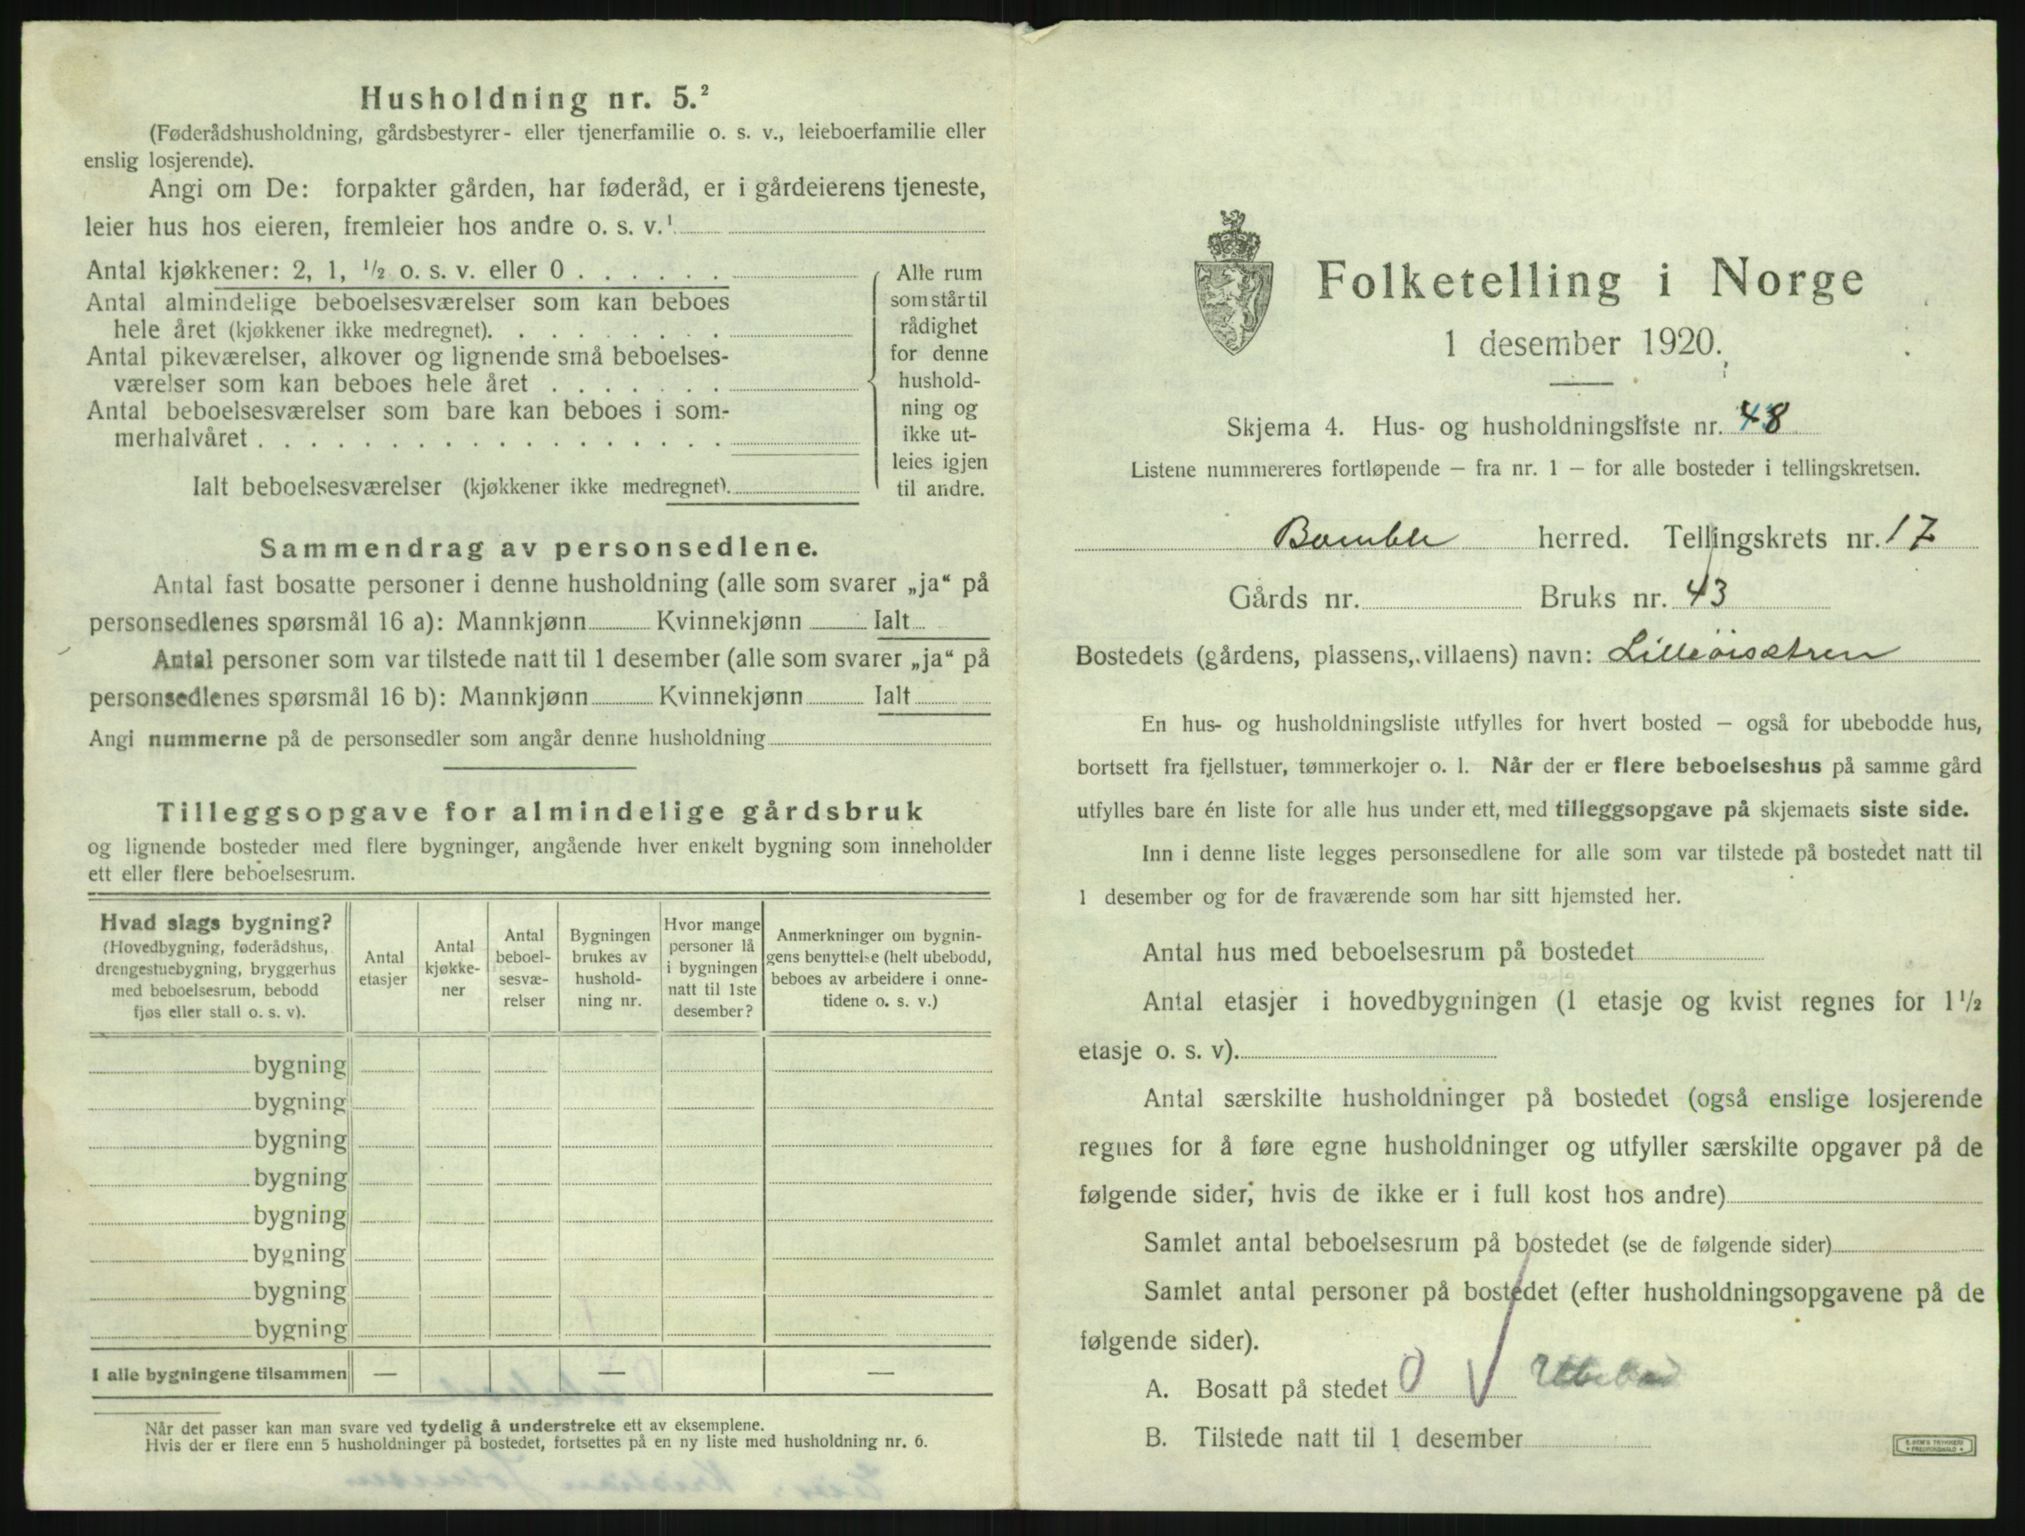 Husholdning nr. 5.²
(Føderådshusholdning, gårdsbestyrer- eller tjenerfamilie o. s. v., leieboerfamilie eller
enslig losjerende).
Angi om De: forpakter gården, har føderåd, er i gårdeierens tjeneste,
leier hus hos eieren, fremleier hos andre o. s. v.¹
Antal kjøkkener: 2, 1, ½ o. s. v. eller 0 . . . . . .
Antal almindelige beboelsesværelser som kan beboes
hele året (kjøkkener ikke medregnet). . . . . . . . .
Antal pikeværelser, alkover og lignende små beboelses-
værelser som kan beboes hele året . . . . . . .
Antal beboelsesværelser som bare kan beboes i som-
merhalvåret . . . . . . . . . . . . . . . . . .
Ialt beboelsesværelser (kjøkkener ikke medregnet).
Alle rum
som står til
rådighet
for denne
hushold-
ning og
ikke ut-
leies igjen
til andre.
Sammendrag av personsedlene.
Antal fast bosatte personer i denne husholdning (alle som svarer „ja“ på
personsedlenes spørsmål 16 a): Mannkjønn Kvinnekjønn Ialt
Antal personer som var tilstede natt til 1 desember (alle som svarer „ja“ på
personsedlenes spørsmål 16 b): Mannkjønn Kvinnekjønn Ialt
Angi nummerne på de personsedler som angår denne husholdning
Tilleggsopgave for almindelige gårdsbruk
og lignende bosteder med flere bygninger, angående hver enkelt bygning som inneholder
ett eller flere beboelsesrum.
Hvad slags bygning?
(Hovedbygning, føderådshus,
drengestuebygning, bryggerhus
med beboelsesrum, bebodd
fjøs eller stall o. s. v).
Antal
etasjer
Antal
kjøkke-
ner
Antal
beboel-
sesvæ-
relser
Bygningen
brukes av
hushold-
ning nr.
Hvor mange
personer lå
i bygningen
natt til 1ste
desember?
Anmerkninger om bygnin-
gens benyttelse (helt ubebodd,
beboes av arbeidere i onne-
tidene o. s. v.)
bygning
bygning
bygning
bygning
bygning
bygning
bygning
bygning
I alle bygningene tilsammen — — —
Når det passer kan man svare ved tydelig å understreke ett av eksemplene.
Hvis der er flere enn 5 husholdninger på bostedet, fortsettes på en ny liste med husholdning nr. 6.
Folketelling i Norge
1 desember 1920.
Skjema 4. Hus- og husholdningsliste nr. 48
Listene nummereres fortløpende – fra nr. 1 – for alle bosteder i tellingskretsen.
Bamble herred. Tellingskrets nr. 17
Gårds nr. Bruks nr. 43
Bostedets (gårdens, plassens, villaens) navn: Lilleøisætren
En hus- og husholdningsliste utfylles for hvert bosted – også for ubebodde hus,
bortsett fra fjellstuer, tømmerkojer o. l. Når der er flere beboelseshus på samme gård
utfylles bare én liste for alle hus under ett, med tilleggsopgave på skjemaets siste side.
Inn i denne liste legges personsedlene for alle som var tilstede på bostedet natt til
1 desember og for de fraværende som har sitt hjemsted her.
Antal hus med beboelsesrum på bostedet
Antal etasjer i hovedbygningen (1 etasje og kvist regnes for 1½
etasje o. s. v).
Antal særskilte husholdninger på bostedet (også enslige losjerende
regnes for å føre egne husholdninger og utfyller særskilte opgaver på de
følgende sider, hvis de ikke er i full kost hos andre)
Samlet antal beboelsesrum på bostedet (se de følgende sider)
Samlet antal personer på bostedet (efter husholdningsopgavene på de
følgende sider).
A. Bosatt på stedet 0
B. Tilstede natt til 1 desember